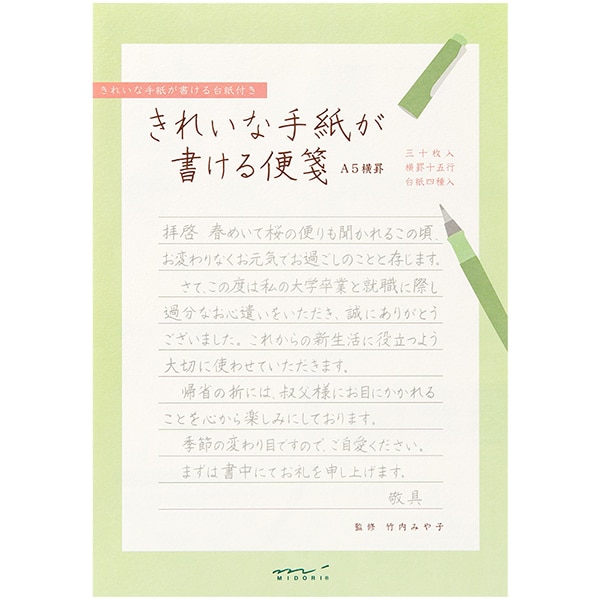 きれいな手紙が書ける台紙付き
きれいな手紙が
書ける便箋 A5横罫
三十枚入
横罫十五行
台紙四種入
拝啓 春めいて桜の便りも聞かれるこの頃、
お変わりなくお元気でお過ごしのことと存じます。
さて、この度は私の大学卒業と就職に際し
過分なお心遣いをいただき、誠にありがとう
ございました。これからの新生活に役立つよう
大切に使わせていただきます。
帰省の折には、叔父様にお目にかかれる
ことを心から楽しみにしております。
季節の変わり目ですので、ご自愛ください。
まずは書中にてお礼を申し上げます。
敬具
監修 竹内みや子
MIDORI